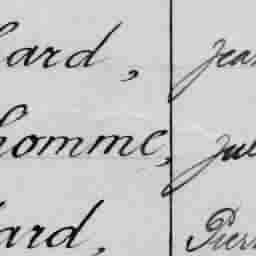 ard, Jea
homme, Jul
ard, Pierr